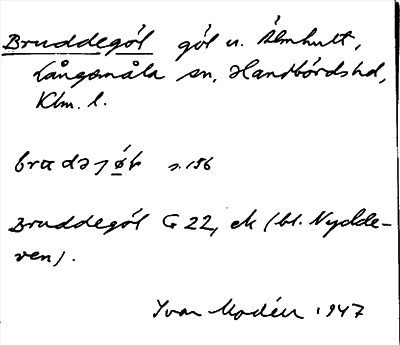 Bruddegöl göl u. Älmhult,
Långasmåla sn, Handbörds hd,
Klm. l.
s. 156
Bruddegöl G 22, ek (bl. Nydde-
ven).
Ivar Modéer 1947